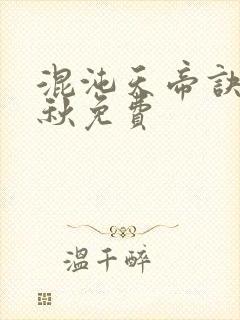 混沌天帝訣
秋免費
溫千醉